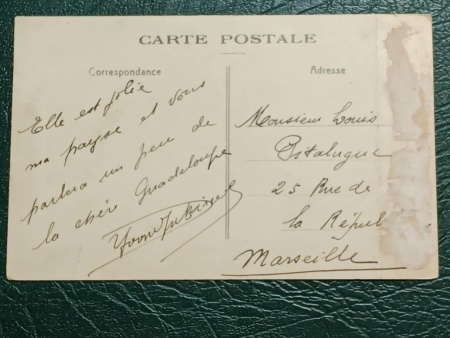 CARTE POSTALE
Correspondance
Adresse
Elle est jolie
ma payse et vous
parlera un peu de
la chère Guadeloupe
Monsieur Louis
Pitalugue
25 Rue de
la Répub
Marseille